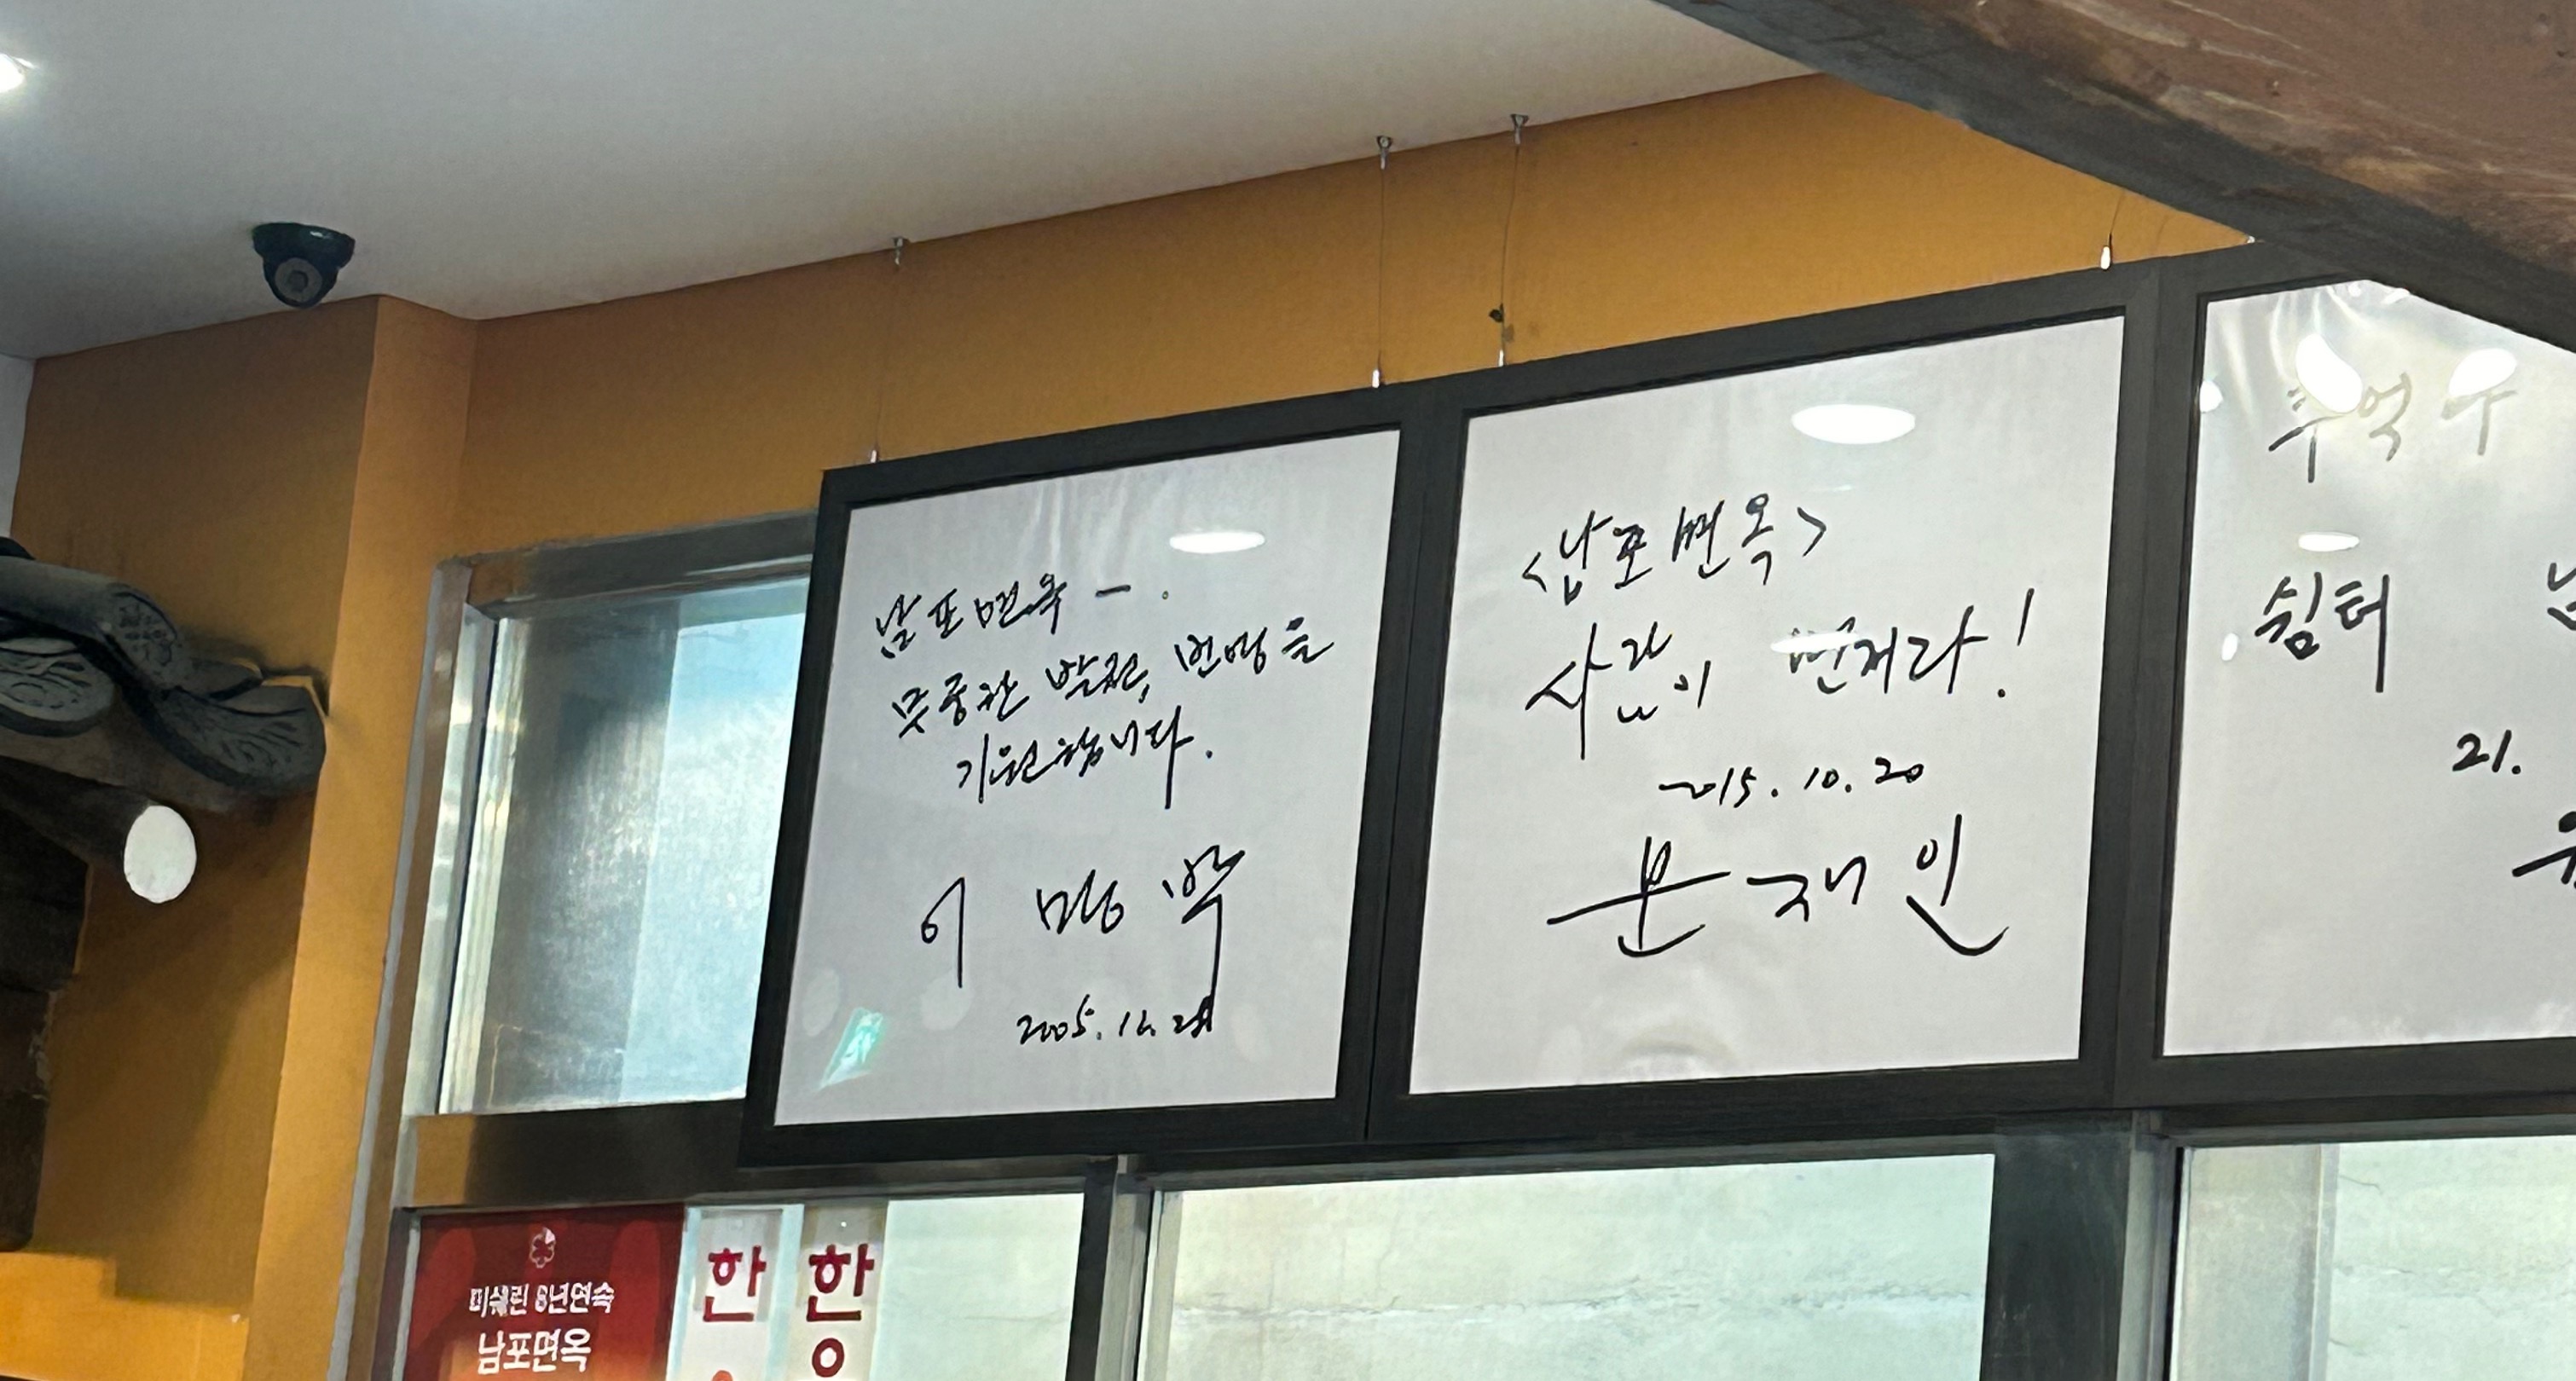 남포면옥 - .
무궁한 발전, 번영을
기원합니다.
이 명 박
2005. 12. 28
<남포면옥>
사람이 먼저다!
2015. 10. 20
문재인
추억
쉼터
21.
미쉐린 8년연속
남포면옥
한
한